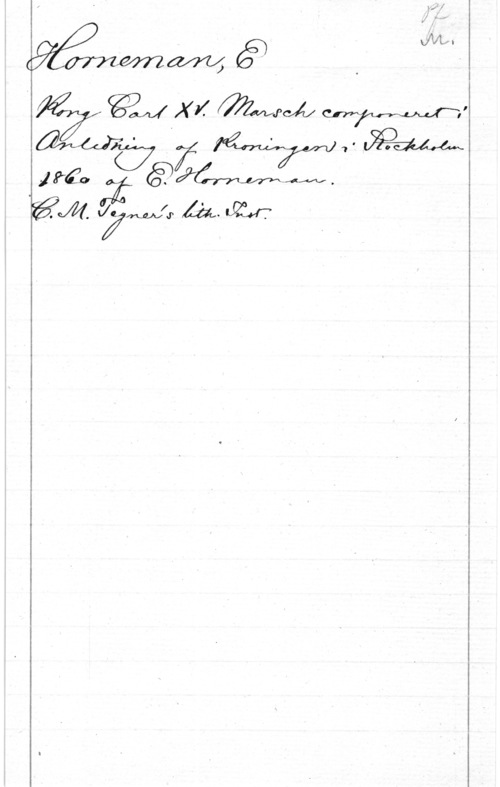 Pf.
M.
Horneman, E
Kong Carl XV. Marsch componeret i
Anledning af Kroningen i Stockholm
1860 af E. Horneman.
C. M. Tegner's lith. Inst.